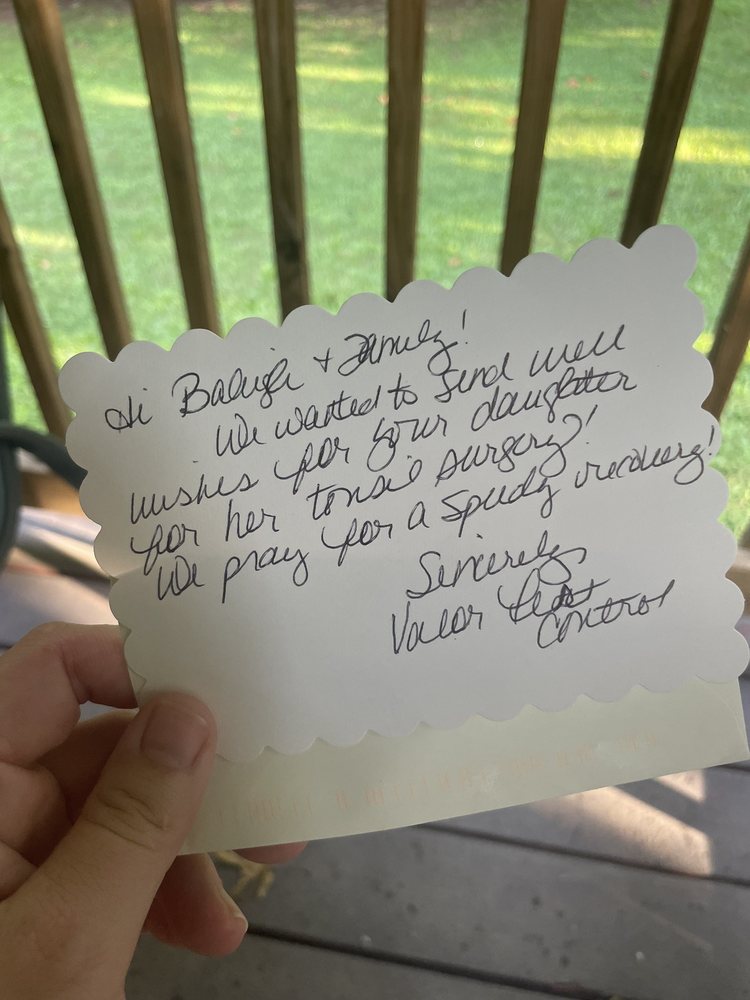 Hi Baleigh + Family!
We wanted to send well
wishes for your daughter
for her tonsil surgery!
We pray for a speedy recovery!
Sincerely,
Valor Pest
Control